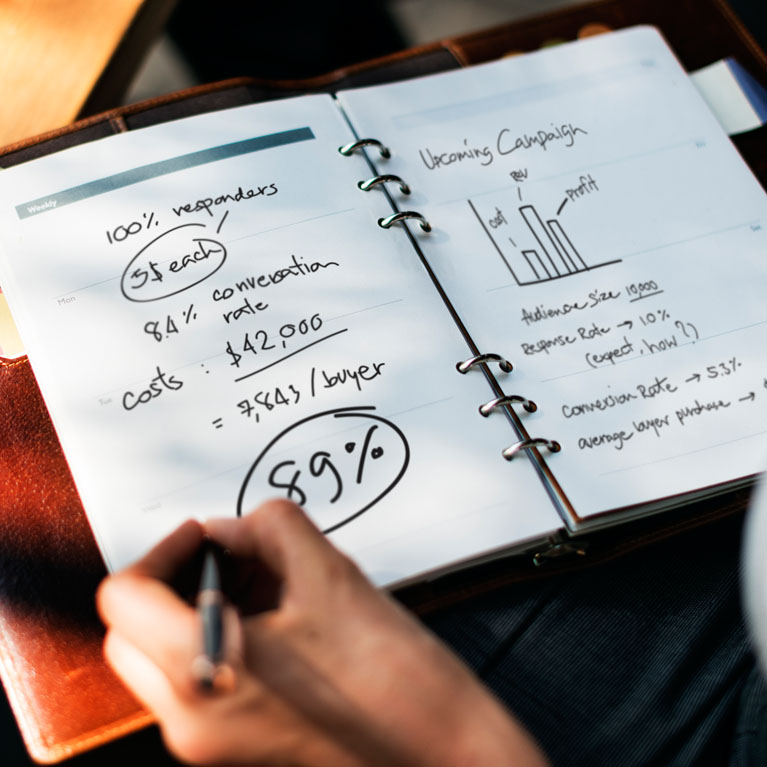 Weekly
100% responders
5$ each
8.4% conversation
rate
costs : $42,000
= 7,843 /buyer
89%
Mon
Tue
Upcoming Campaign
cost
rev
profit
Audience Size 10,000
Response Rate → 10%
(expect, how?)
Conversion Rate → 5.3%
average buyer purchase →
Fri
Sat